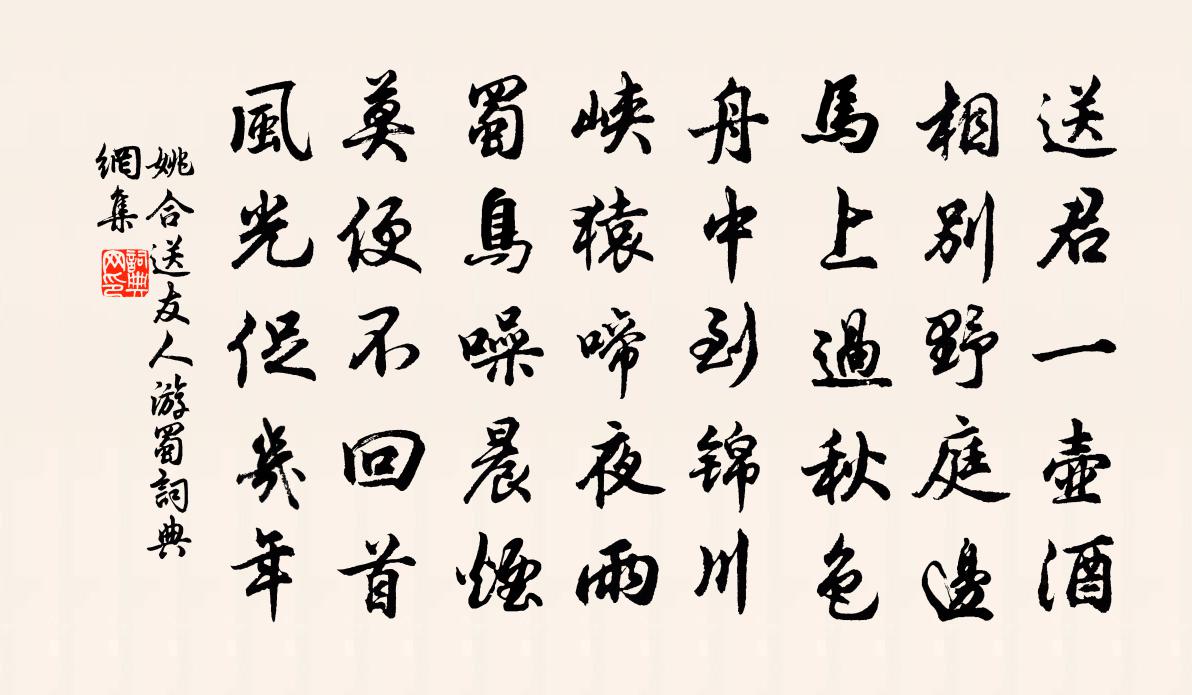 送君一壺酒
相別野庭邊
馬上過秋色
舟中到锦川
峽猿啼夜雨
蜀鳥噪晨煙
莫便不回首
風光促幾年
姚合送友人游蜀詞典
網集
詞典
网印